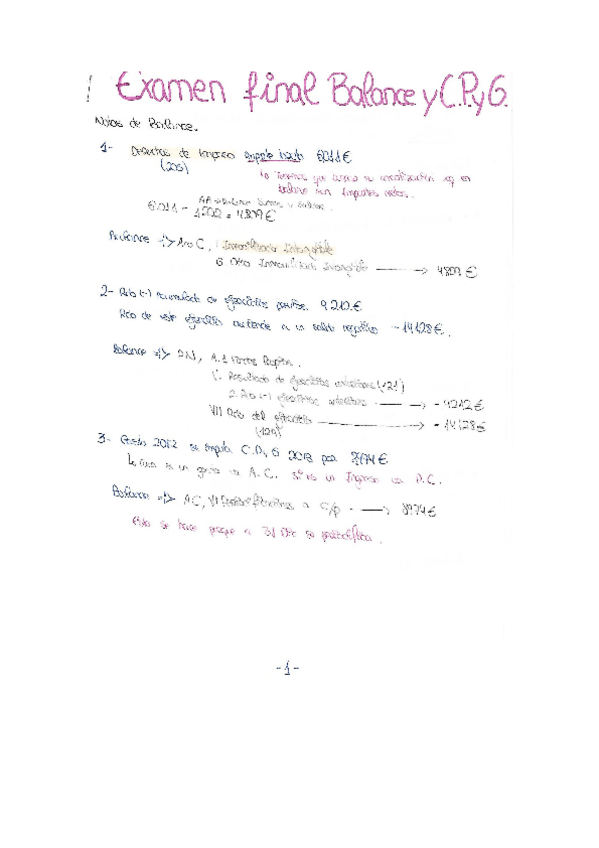 Examen final Balance y C.PyG.
Notas de Balance.
1- Derechos de traspaso importe bruto 6011€
(205)
↳ Tenemos que su amortización en
balance son importes netos.
6.011 - 1202 = 4809€
Balance => A no C, I Inmovilizado Intangible
6. Otro Inmovilizado Intangible → 4809€
2- Rdo (-) acumulado de ejercicios 9.212.€
Rdo de este ejercicio asciende a un saldo negativo -14128€.
Balance => PN, A.1 Fondos Propios.
V. Resultado de ejercicios anteriores (121)
2. Rdo (-) ejercicios anteriores → -9212€
VII Rdo del ejercicio → -14128€
(129)
3- Gasto 2012 se imputa C.PyG 2013 por 8974€
↳ es un gasto va A.C. Si es un Ingreso va P.C.
Balance => AC, VI Periodificaciones a c/p → 8974€
Esto se hace porque a 31 Dic se periodifica.
-1-